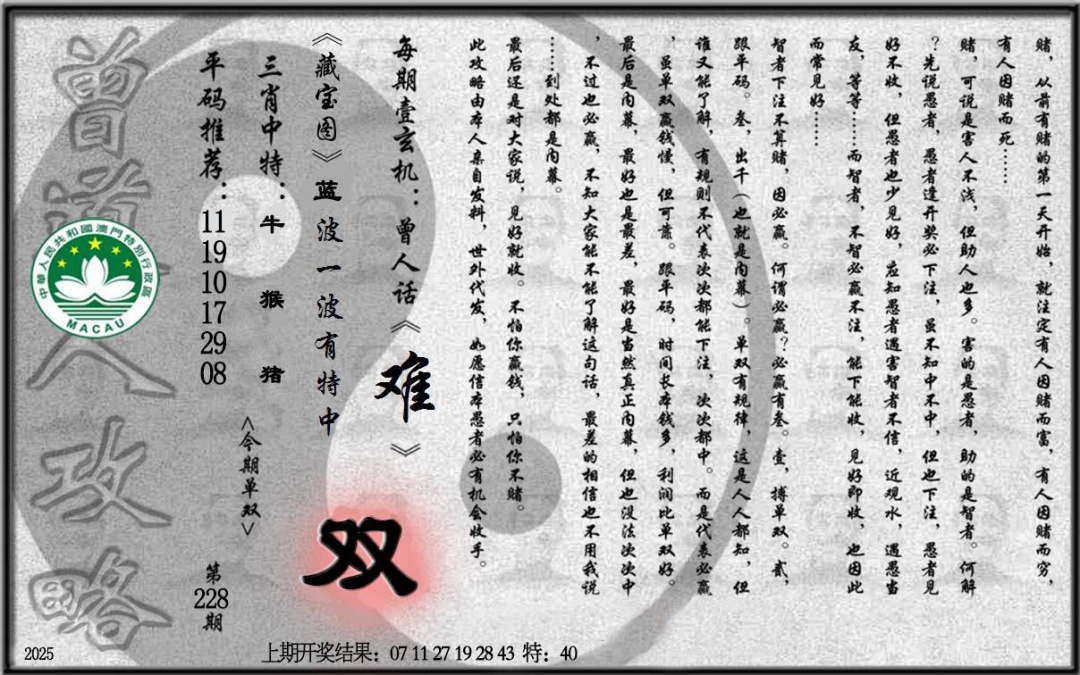 赌，从前有赌的第一天开始，就注定有人因赌而富，有人因赌而穷，
有人因赌而死……
赌，可说是害人不浅，但助人也多。害的是愚者，助的是智者。何解
？先说愚者，愚者逢开奖必下注，虽不知中不中，但也下注，愚者见
好不收，但愚者也少见好，应知愚者遇害智者不信，近观水，遇愚当
友，等等……而智者，不智必赢不注，能下能收，见好即收，也因此
而常见好……
智者下注不算赌，因必赢。何谓必赢？必赢有叁。壹，搏单双。贰，
跟平码。叁，出千（也就是内幕）。单双有规律，这是人人都知，但
谁又能了解，有规则不代表次次都能下注，次次都中。而是代表必赢
，虽单双赢钱慢，但可靠。跟平码，时间长本钱多，利润比单双好。
最后是内幕，最好也是最差，最好是当然真正内幕，但也没法次次中
，不过也必赢，不知大家能不能了解这句话，最差的相信也不用我说
……到处都是内幕。
最后还是对大家说，见好就收。不怕你赢钱，只怕你不赌。
此攻略由本人亲自发料，世外代发，如愿信本愚者必有机会收手。
每期壹玄机：曾人话《难》
《藏宝图》蓝波一波有特中
双
三肖中特：牛 猴 猪
<今期单双>
平码推荐：11 19 10 17 29 08
第228期
曾道人攻略
中華人民共和國澳門特別行政區
MACAU
2025
上期开奖结果：07 11 27 19 28 43 特：40